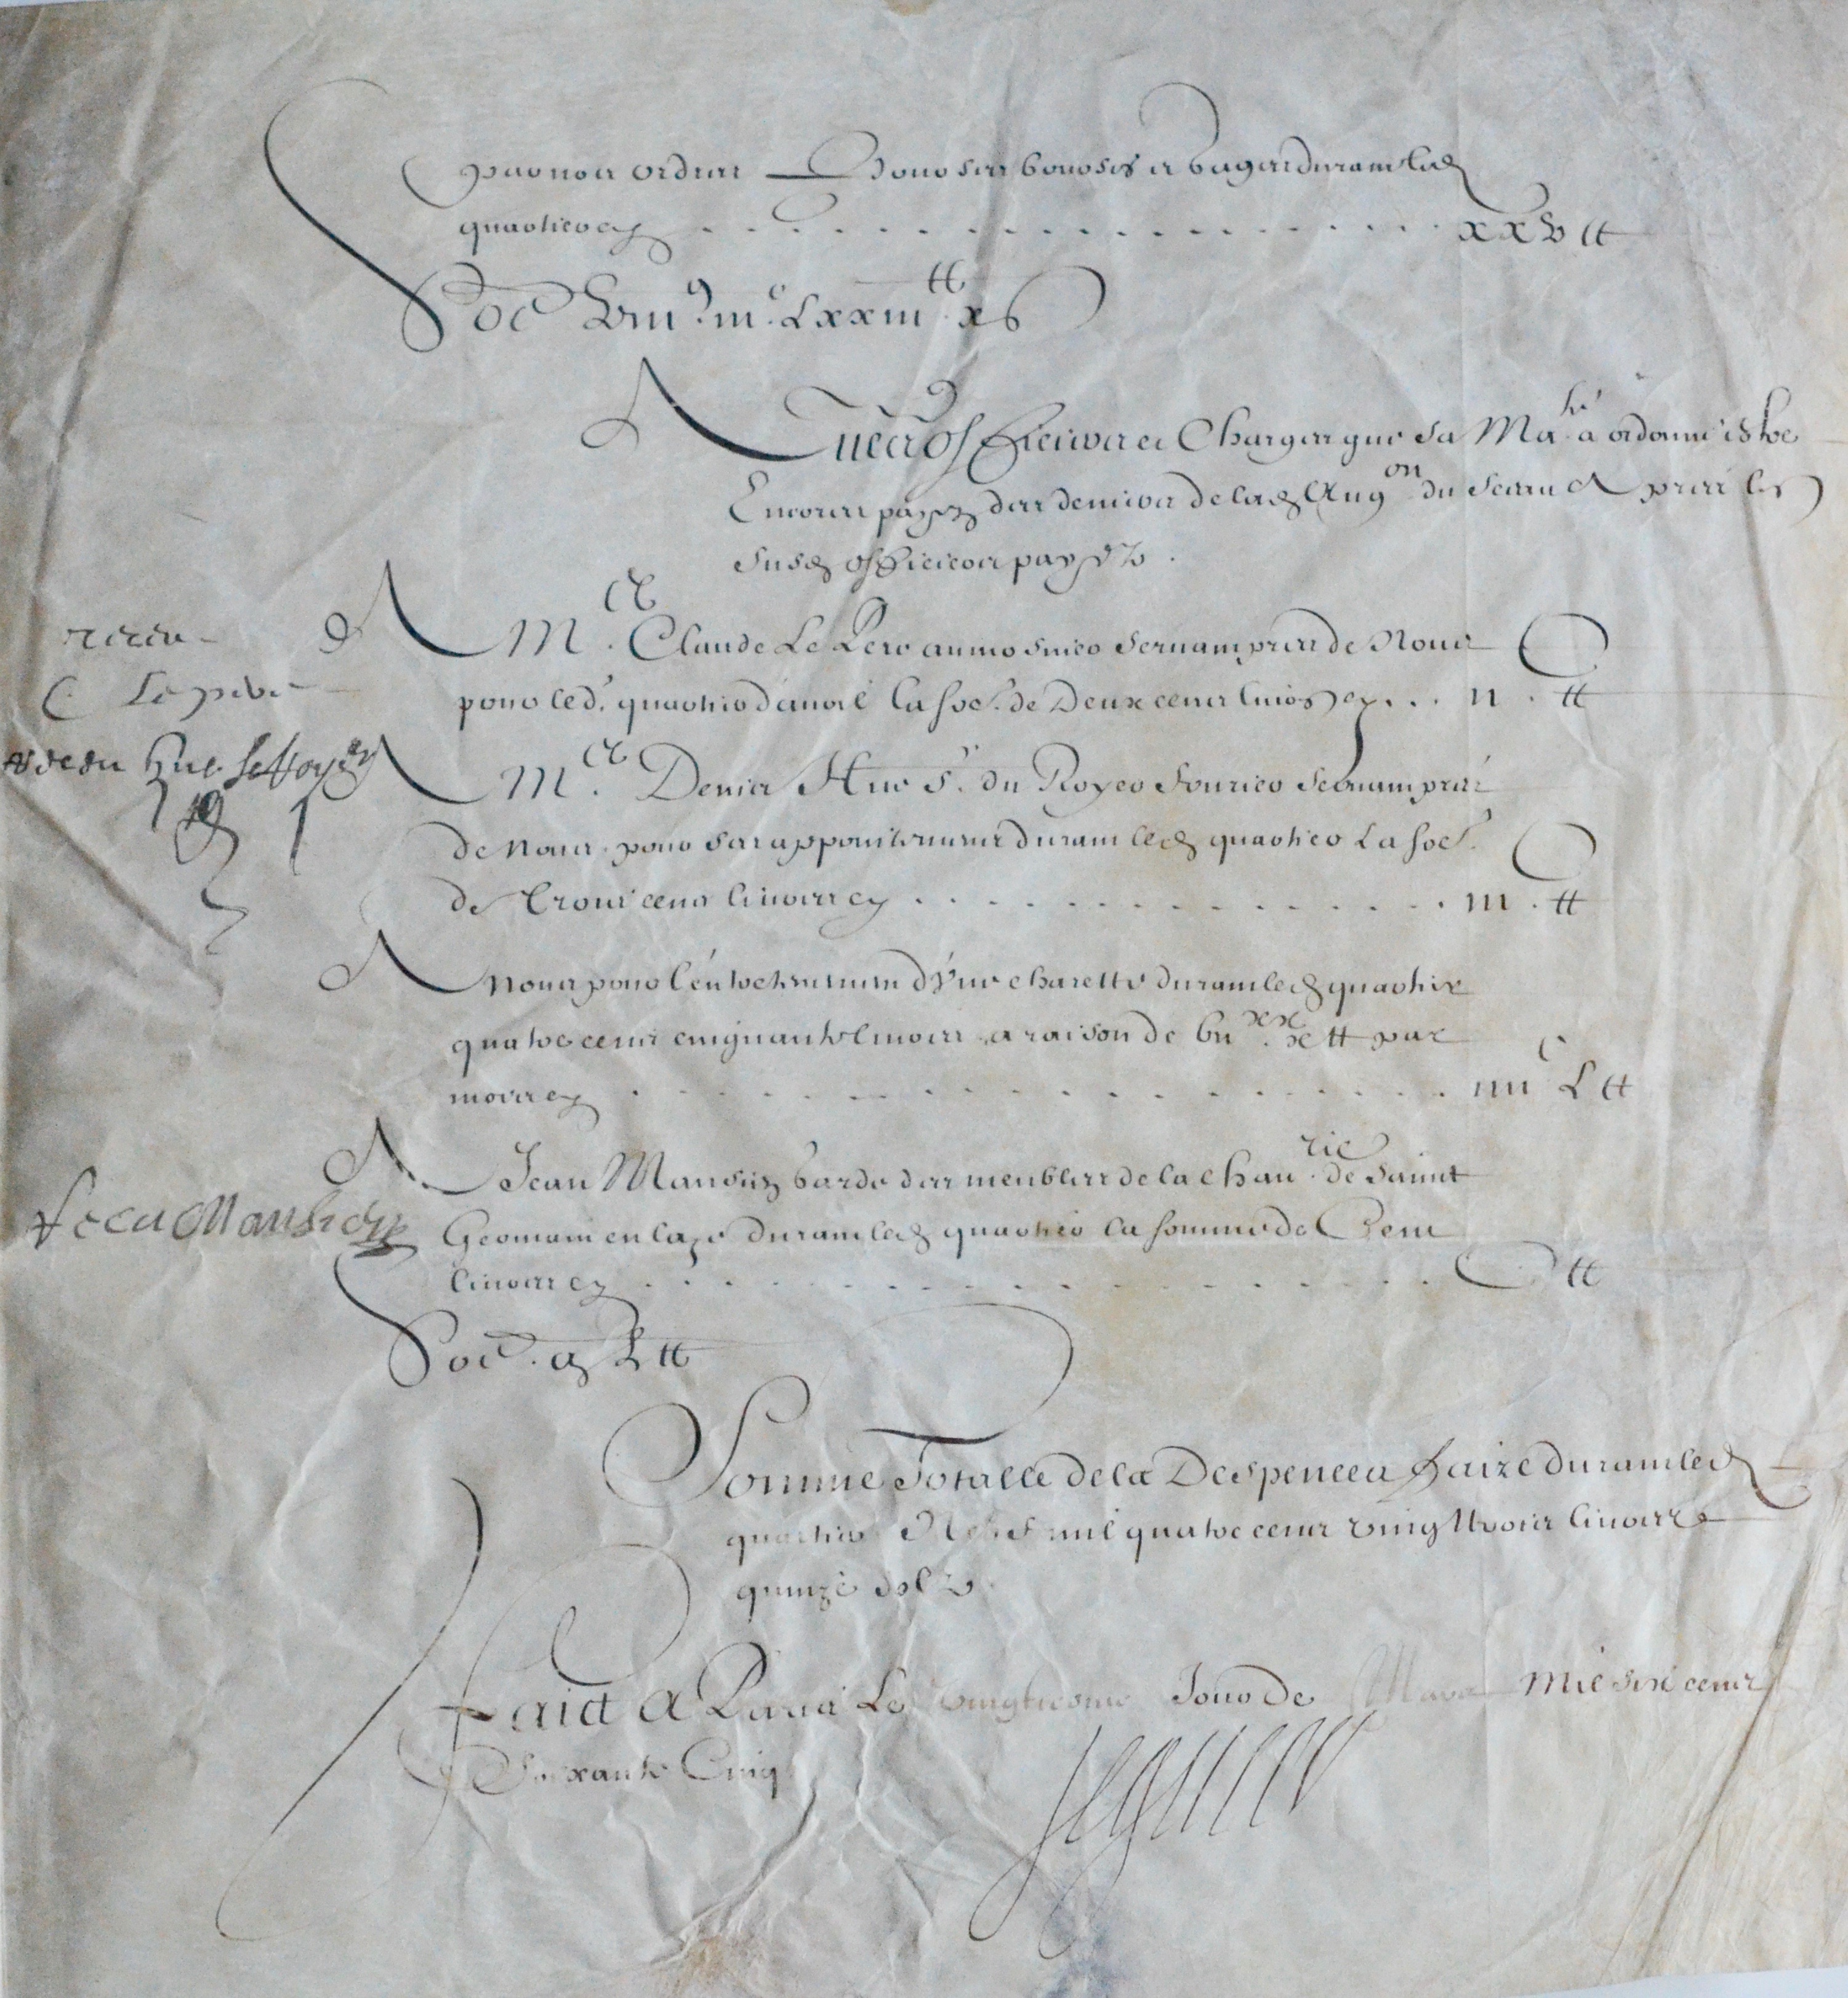 par nos ordres Pour ses bources et gages durant led
quartier cy XXV tt
Som VIII m. IIIc LXXIII tt XV s
Autres officiers et Charges que sa Ma.té a ordonné estre
Encores payez des deniers de lad Aug.on du Sceau Aprés les
susd officiers payéz.
receu
C Le pere
A M.e Claude Le Pere aumosnier servant prez de Nous
pour led. quartier d'avril la som. de Deux cens livres cy... IIc tt
receu hue du Royer
A M.e Denis Hue S.r du Royer fourier servant prez
de nous pour ses appointemens durant led quartier La som.
de Trois cens livres cy IIIc tt
A nous pour l'entretenement d'une charette durant led quartier
quatre cens cinquante livres a raison de VII xx X tt par
mois cy IIIIc L tt
receu Mansion
A Jean Mansion garde des meubles de la Chan.rie de Saint
Germain en laye durant led quartier la somme de Cent
livres cy C tt
Som. M L tt
Somme Totalle de la Despence faite durant led
quartier Neuf mil quatre cens vingt trois livres
quinze solz
Faict A Paris Le vingtiesme Jour de Mars Mil six cens
Soixante Cinq
Seguier